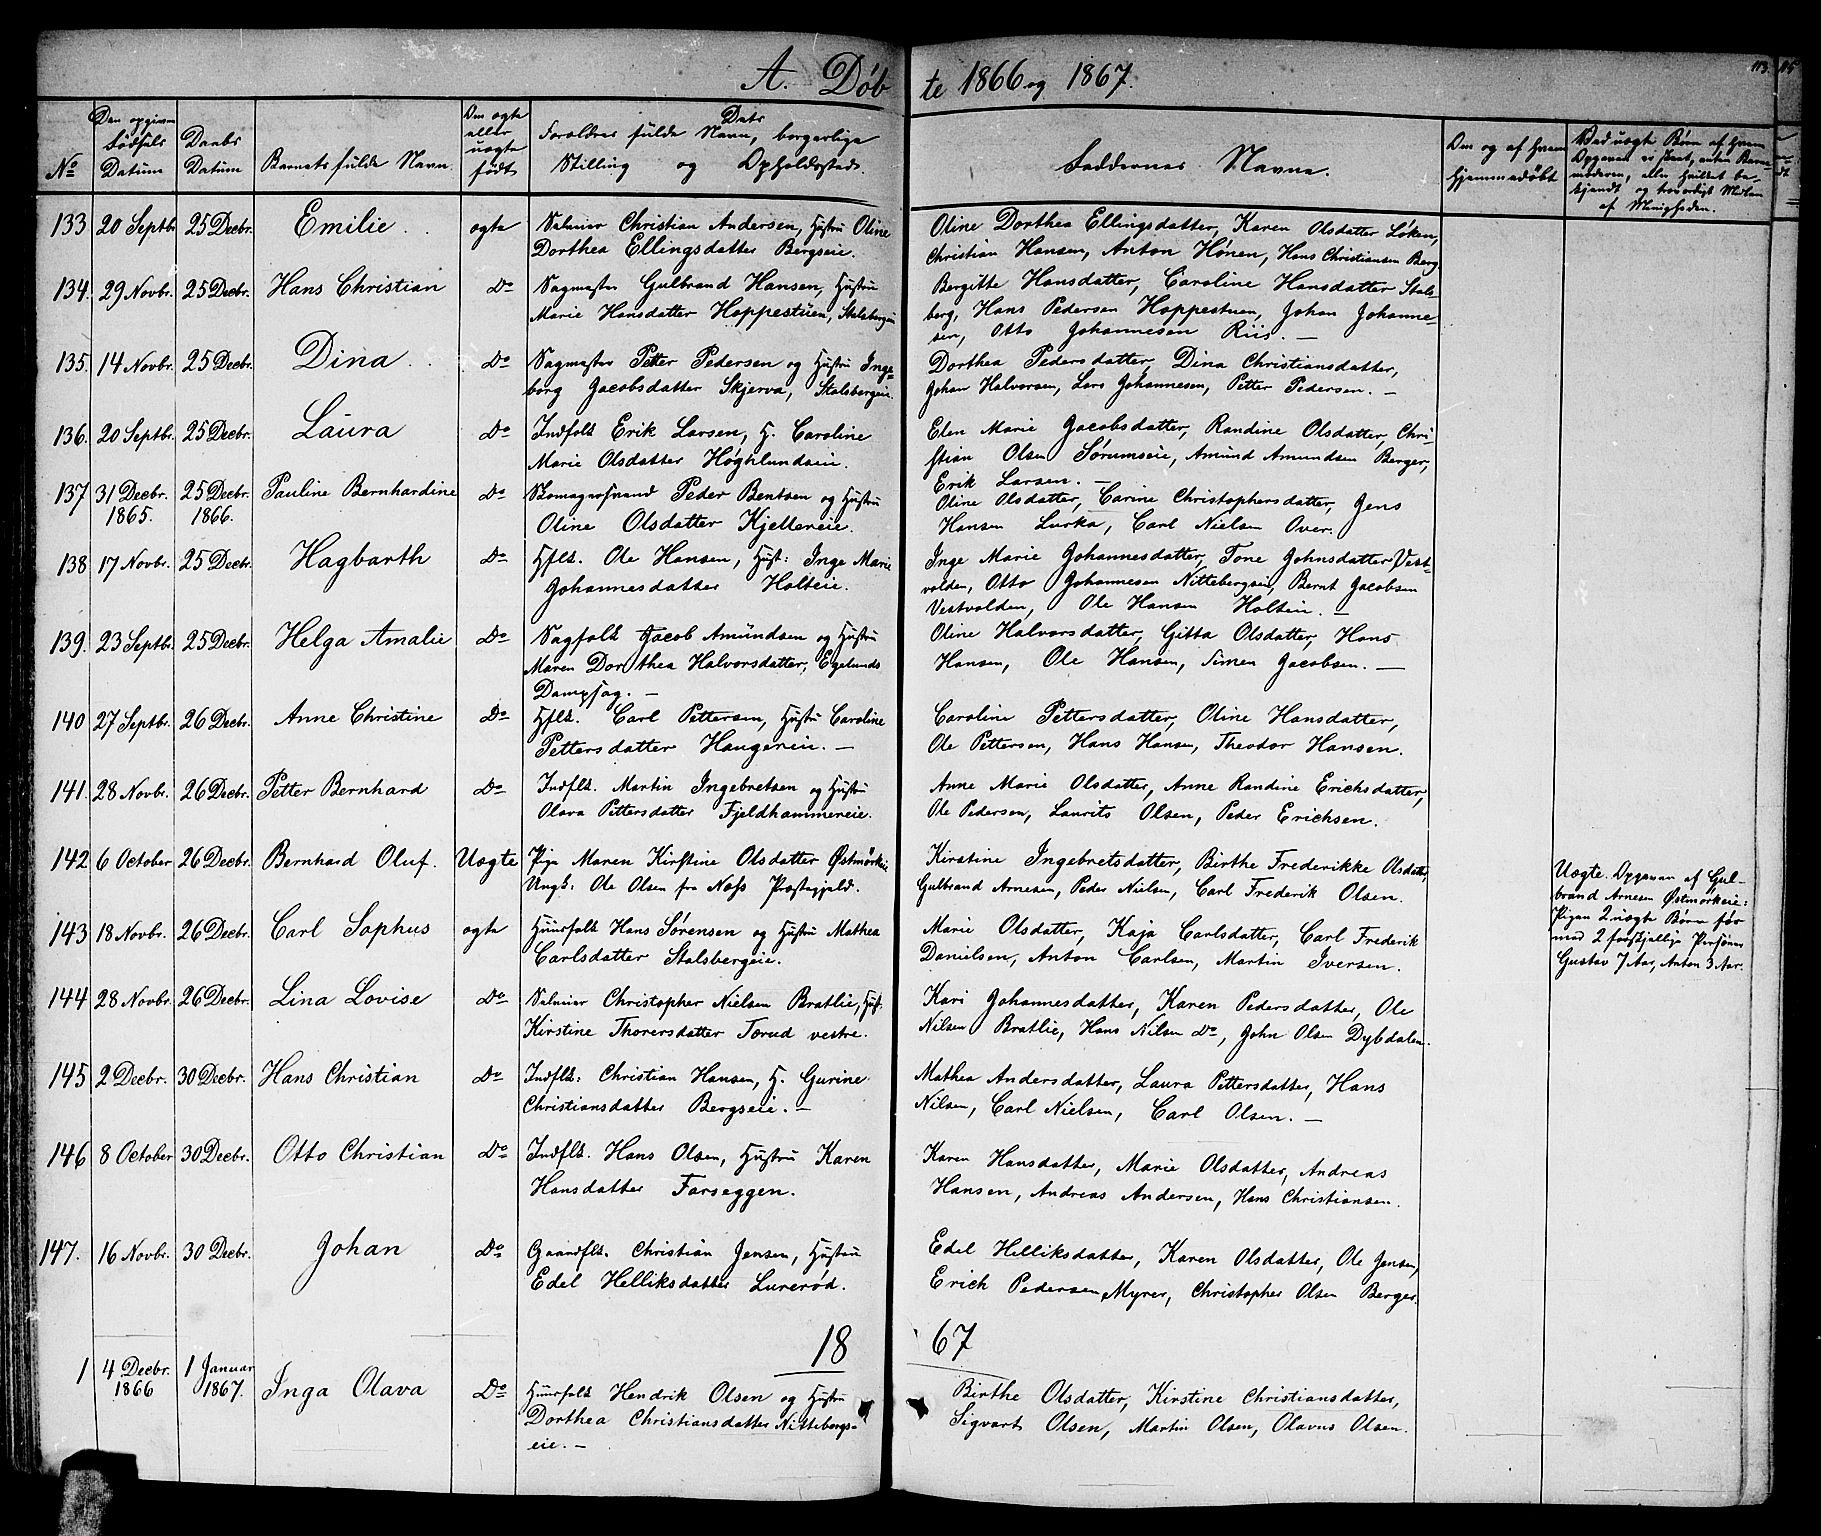 A. Døb
te 1866 og 1867.
113
No
Den opgivne Fødsels Datum
Daabs Datum
Barnets fulde Navn.
Om ægte eller uægte født
Forældres fulde Navn, Dets borgerlige Stilling og Opholdssted.
Faddernes Navne.
Om og af hvem hjemmedøbt
133 20 Septb. 25 Decbr. Emilie. ægte Selveier Christian Andersen, Hustru Oline
Dorthea Ellingsdatter Bergseie.
Oline Dorthea Ellingsdatter, Karen Olsdatter Løken,
Christian Hansen, Anton Hønen, Hans Christiansen Berg.
134. 29 Novbr. 25 Decbr. Hans Christian Do Sagmester Gulbrand Hansen, Hustru
Marie Hansdatter Hoppestuen, Stalsbergeie
Bergitte Hansdatter, Caroline Hansdatter Stals-
berg, Hans Pedersen Hoppestuen, Johan Johanne-
sen, Otto Johannesen Riis. —
135. 14 Novbr. 25 Decbr. Dina. Do Sagmester Petter Pedersen og Hustru Inge-
borg Jacobsdatter Skjerva, Stalsbergeie.
Dorthea Pedersdatter, Dina Christiansdatter,
Johan Halvorsen, Lars Johannesen, Petter Pedersen. —
136. 20 Septbr. 25 Decbr. Laura Do Indfolk Erik Larsen, H. Caroline
Marie Olsdatter Høghlundseie.
Elen Marie Jacobsdatter, Randine Olsdatter, Chri-
stian Olsen Sørumseie, Amund Amundsen Berger,
Erik Larsen. —
137 31 Decbr. 1865. 25 Decbr. 1866. Pauline Bernhardine Do Skomagersvend Peder Bentsen og Hustru
Oline Olsdatter Kjellereie.
Oline Olsdatter, Carine Christophersdatter, Jens
Hansen Lurka, Carl Nielsen Over.
138 17 Novbr. 25 Decbr. Hagbarth Do Hflk. Ole Hansen, Hust: Inge Marie
Johannesdatter Holteie.
Inge Marie Johannesdatter, Tone Johnsdatter Vest-
volden, Otto Johannesen Nittebergseie, Bernt Jacobsen
Vestvolden, Ole Hansen Holteie. —
139. 23 Septbr. 25 Decbr. Helga Amalie Do Sagfolk Jacob Amundsen og Hustru
Maren Dorthea Halvorsdatter, Egelunds
Dampsag. —
Oline Halvorsdatter, Gitta Olsdatter, Hans
Hansen, Ole Hansen, Simen Jacobsen. —
140 27 Septbr. 26 Decbr. Anne Christine Do Hflk. Carl Pettersen, Hustru Caroline
Pettersdatter Haugereie. —
Caroline Pettersdatter, Oline Hansdatter,
Ole Pettersen, Hans Hansen, Theodor Hansen.
141. 28 Novbr. 26 Decbr. Petter Bernhard Do Indflk. Martin Ingebretsen og Hustru
Olava Pettersdatter Fjeldhammereie.
Anne Marie Olsdatter, Anne Randine Erichsdatter,
Ole Pedersen, Laurits Olsen, Peder Erichsen.
142 6 October 26 Decbr. Bernhard Oluf. Uægte Pige Maren Kirstine Olsdatter Østmørkeie
Ungk: Ole Olsen fra Næss Præstegjeld.
Kirstine Ingebretsdatter, Birthe Frederikke Olsdatter,
Gulbrand Arnesen, Peder Nielsen, Carl Frederik Olsen.
Uægte. Opgaven af Gul-
brand Arnesen Østmørkeie:
Pigen 2 uægte Børn før
med 2 forskjellige Personer
Gustav 7 Aar, Anton 3 Aar.
143 18 Novbr. 26 Decbr. Carl Sophus ægte Huusfolk Hans Sørensen og Hustru Mathea
Carlsdatter Stalsbergeie.
Marie Olsdatter, Kaja Carlsdatter, Carl Frederik
Danielsen, Anton Carlsen, Martin Iversen.
144 28 Novbr. 26 Decbr. Lina Lovise Do Selveier Christopher Nielsen Bratlie, Hust:
Kirstine Thorersdatter Torud vestre.
Kari Johannesdatter, Karen Pedersdatter, Ole
Nilsen Bratlie, Hans Nilsen Do, John Olsen Dybdalen.
145 2 Decbr. 30 Decbr. Hans Christian Do Indflk: Christian Hansen, H. Gurine
Christiansdatter Bergseie. —
Mathea Andersdatter, Laura Pettersdatter, Hans
Nilsen, Carl Nielsen, Carl Olsen. —
146 8 October 30 Decbr. Otto Christian Do Indflk. Hans Olsen, Hustru Karen
Hansdatter Farseggen.
Karen Hansdatter, Marie Olsdatter, Andreas
Hansen, Andreas Andersen, Hans Christiansen.
147. 16 Novbr. 30 Decbr. Johan Do Gaardflk. Christian Jensen, Hustru
Edel Helliksdatter Lurerød.
Edel Helliksdatter, Karen Olsdatter, Ole Jensen,
Erick Pedersen Myrer, Christopher Olsen Berger.
18 67
1 4 Decbr. 1866 1 Januar 1867. Inga Olava Do Huusfolk Hendrik Olsen og Hustru
Dorthea Christiansdatter Nittebergs-
eie. —
Birthe Olsdatter, Kirstine Christiansdatter,
Sigvart Olsen, Martin Olsen, Olavus Olsen.